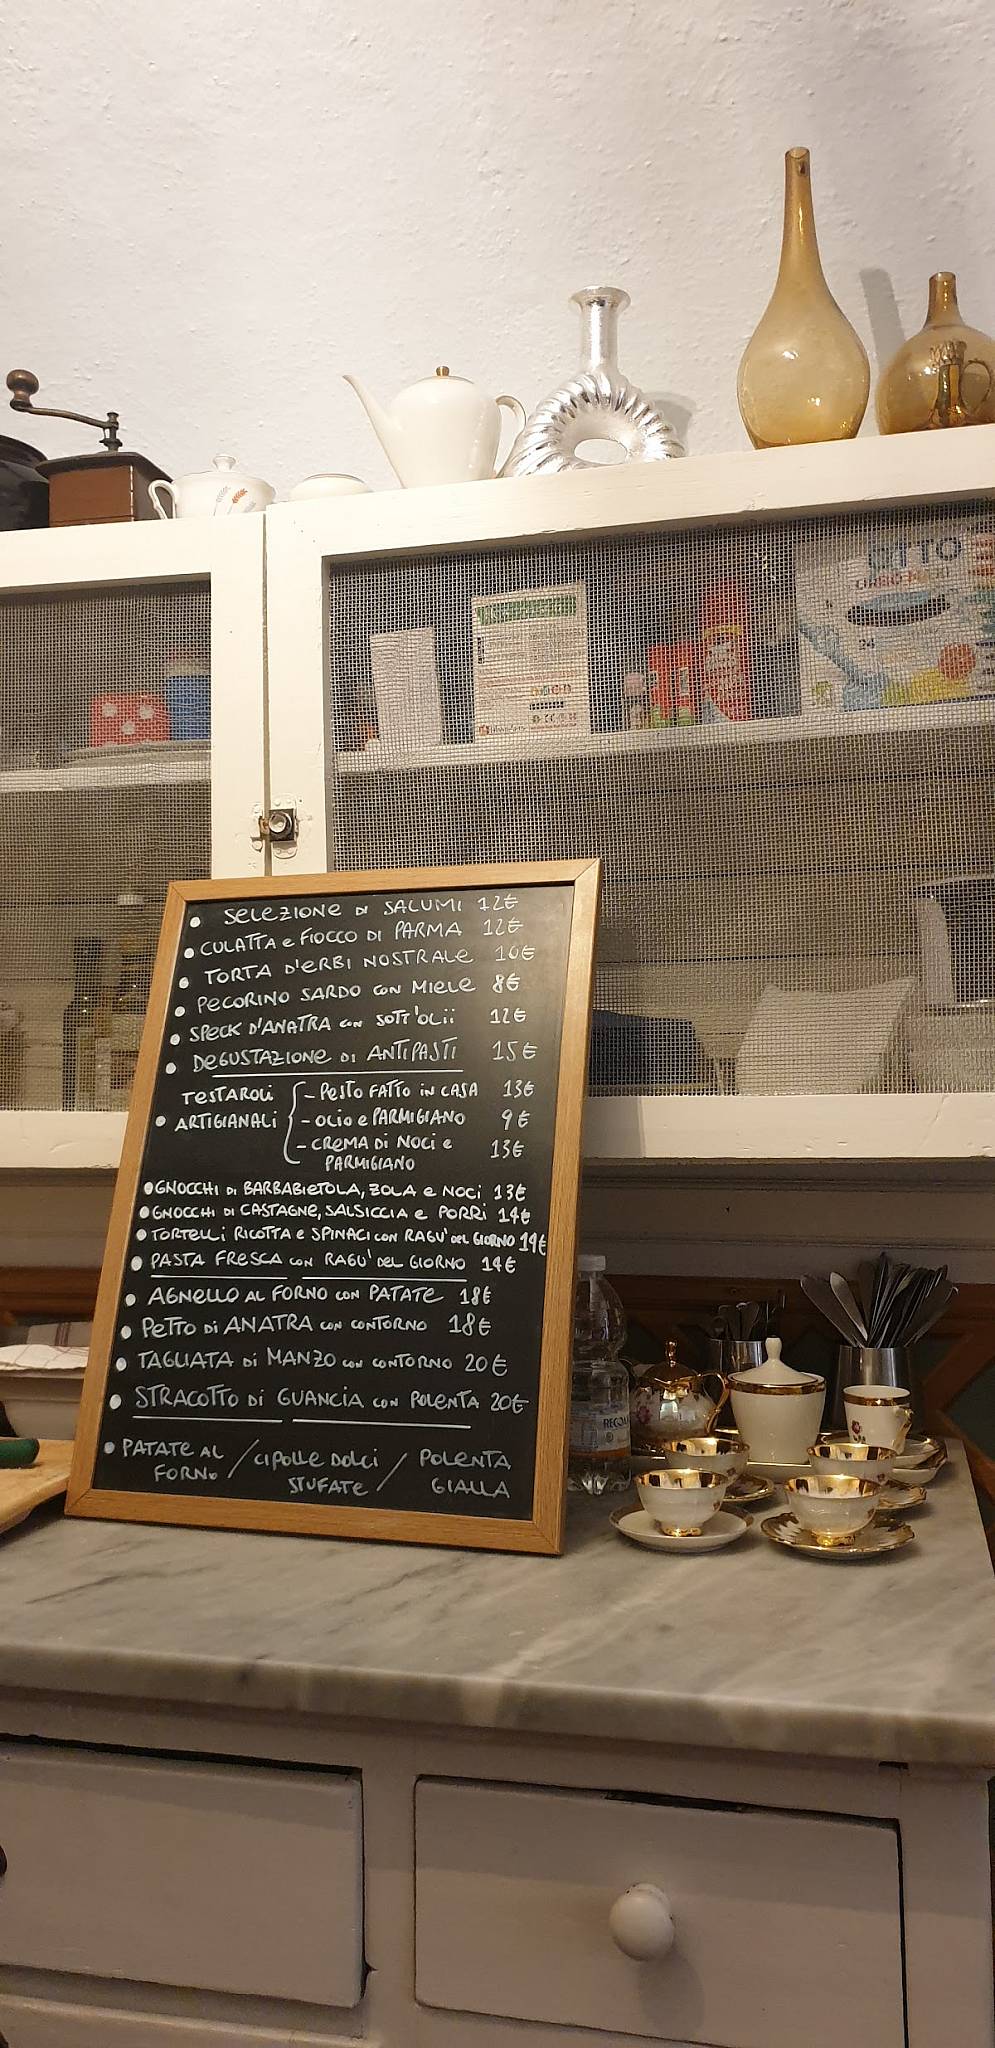 OTTO
• SELEZIONE DI SALUMI 12€
• CULATTA e FIOCCO DI PARMA 12€
• TORTA D'ERBI NOSTRALE 10€
• PECORINO SARDO CON MIELE 8€
• SPECK D'ANATRA CON SOTT'OLII 12€
• DEGUSTAZIONE DI ANTIPASTI 15€
• TESTAROLI ARTIGIANALI
- PESTO FATTO IN CASA 13€
- OLIO e PARMIGIANO 9€
- CREMA DI NOCI e 13€
PARMIGIANO
• GNOCCHI DI BARBABIETOLA, ZOLA e NOCI 13€
• GNOCCHI DI CASTAGNE, SALSICCIA e PORRI 14€
• TORTELLI RICOTTA e SPINACI CON RAGU' DEL GIORNO 14€
• PASTA FRESCA CON RAGU' DEL GIORNO 14€
• AGNELLO AL FORNO CON PATATE 18€
• PETTO DI ANATRA CON CONTORNO 18€
• TAGLIATA DI MANZO CON CONTORNO 20€
• STRACOTTO DI GUANCIA CON POLENTA 20€
• PATATE AL FORNO / CIPOLLE DOLCI STUFATE / POLENTA GIALLA